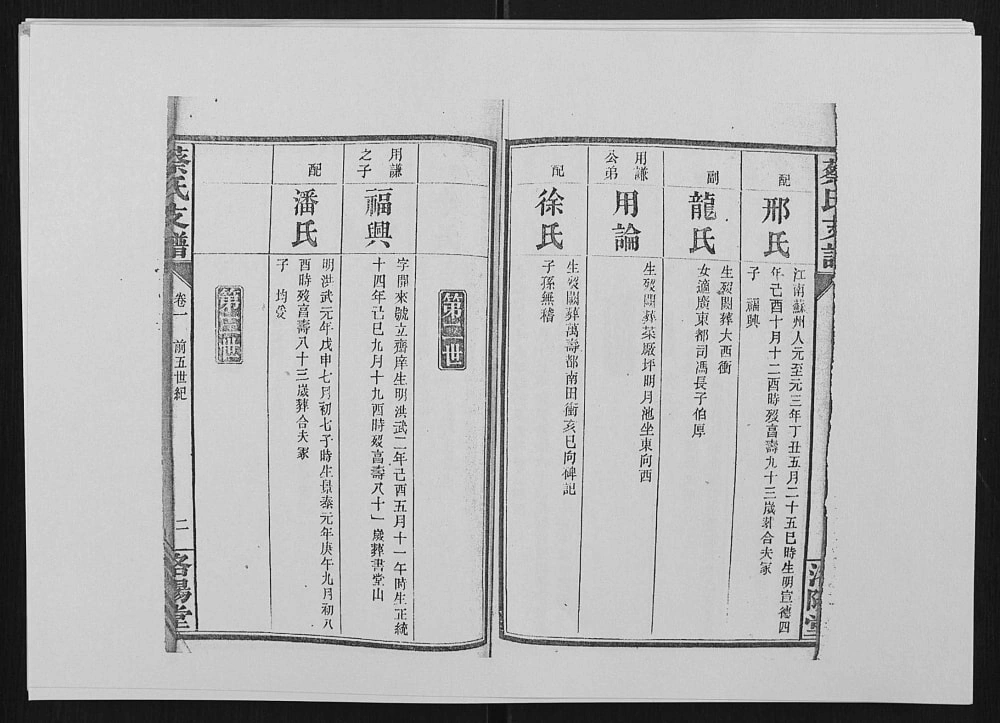 蔡氏支譜
洛陽堂
配
邢氏
江南蘇州人元至元三年丁丑五月二十五巳時生明宣德四
年己酉十月十二酉時歿享壽九十三歲葬合夫冢
子 福興
副
龍氏
生歿闕葬大西衝
女適廣東都司馮長子伯厚
用謙
公弟
用論
生歿闕葬菜厰坪明月池坐東向西
配
徐氏
生歿闕葬萬壽都南田衝亥巳向碑記
子孫無稽
第二世
用謙
之子
福興
字開來號立齋庠生明洪武二年己酉五月十一午時生正統
十四年己巳九月十九酉時歿享壽八十一歲葬書堂山
配
潘氏
明洪武元年戊申七月初七子時生景泰元年庚午九月初八
酉時歿享壽八十三歲葬合夫冢
子 均受
第三世
蔡氏支譜
卷一 前五世紀
二
洛陽堂